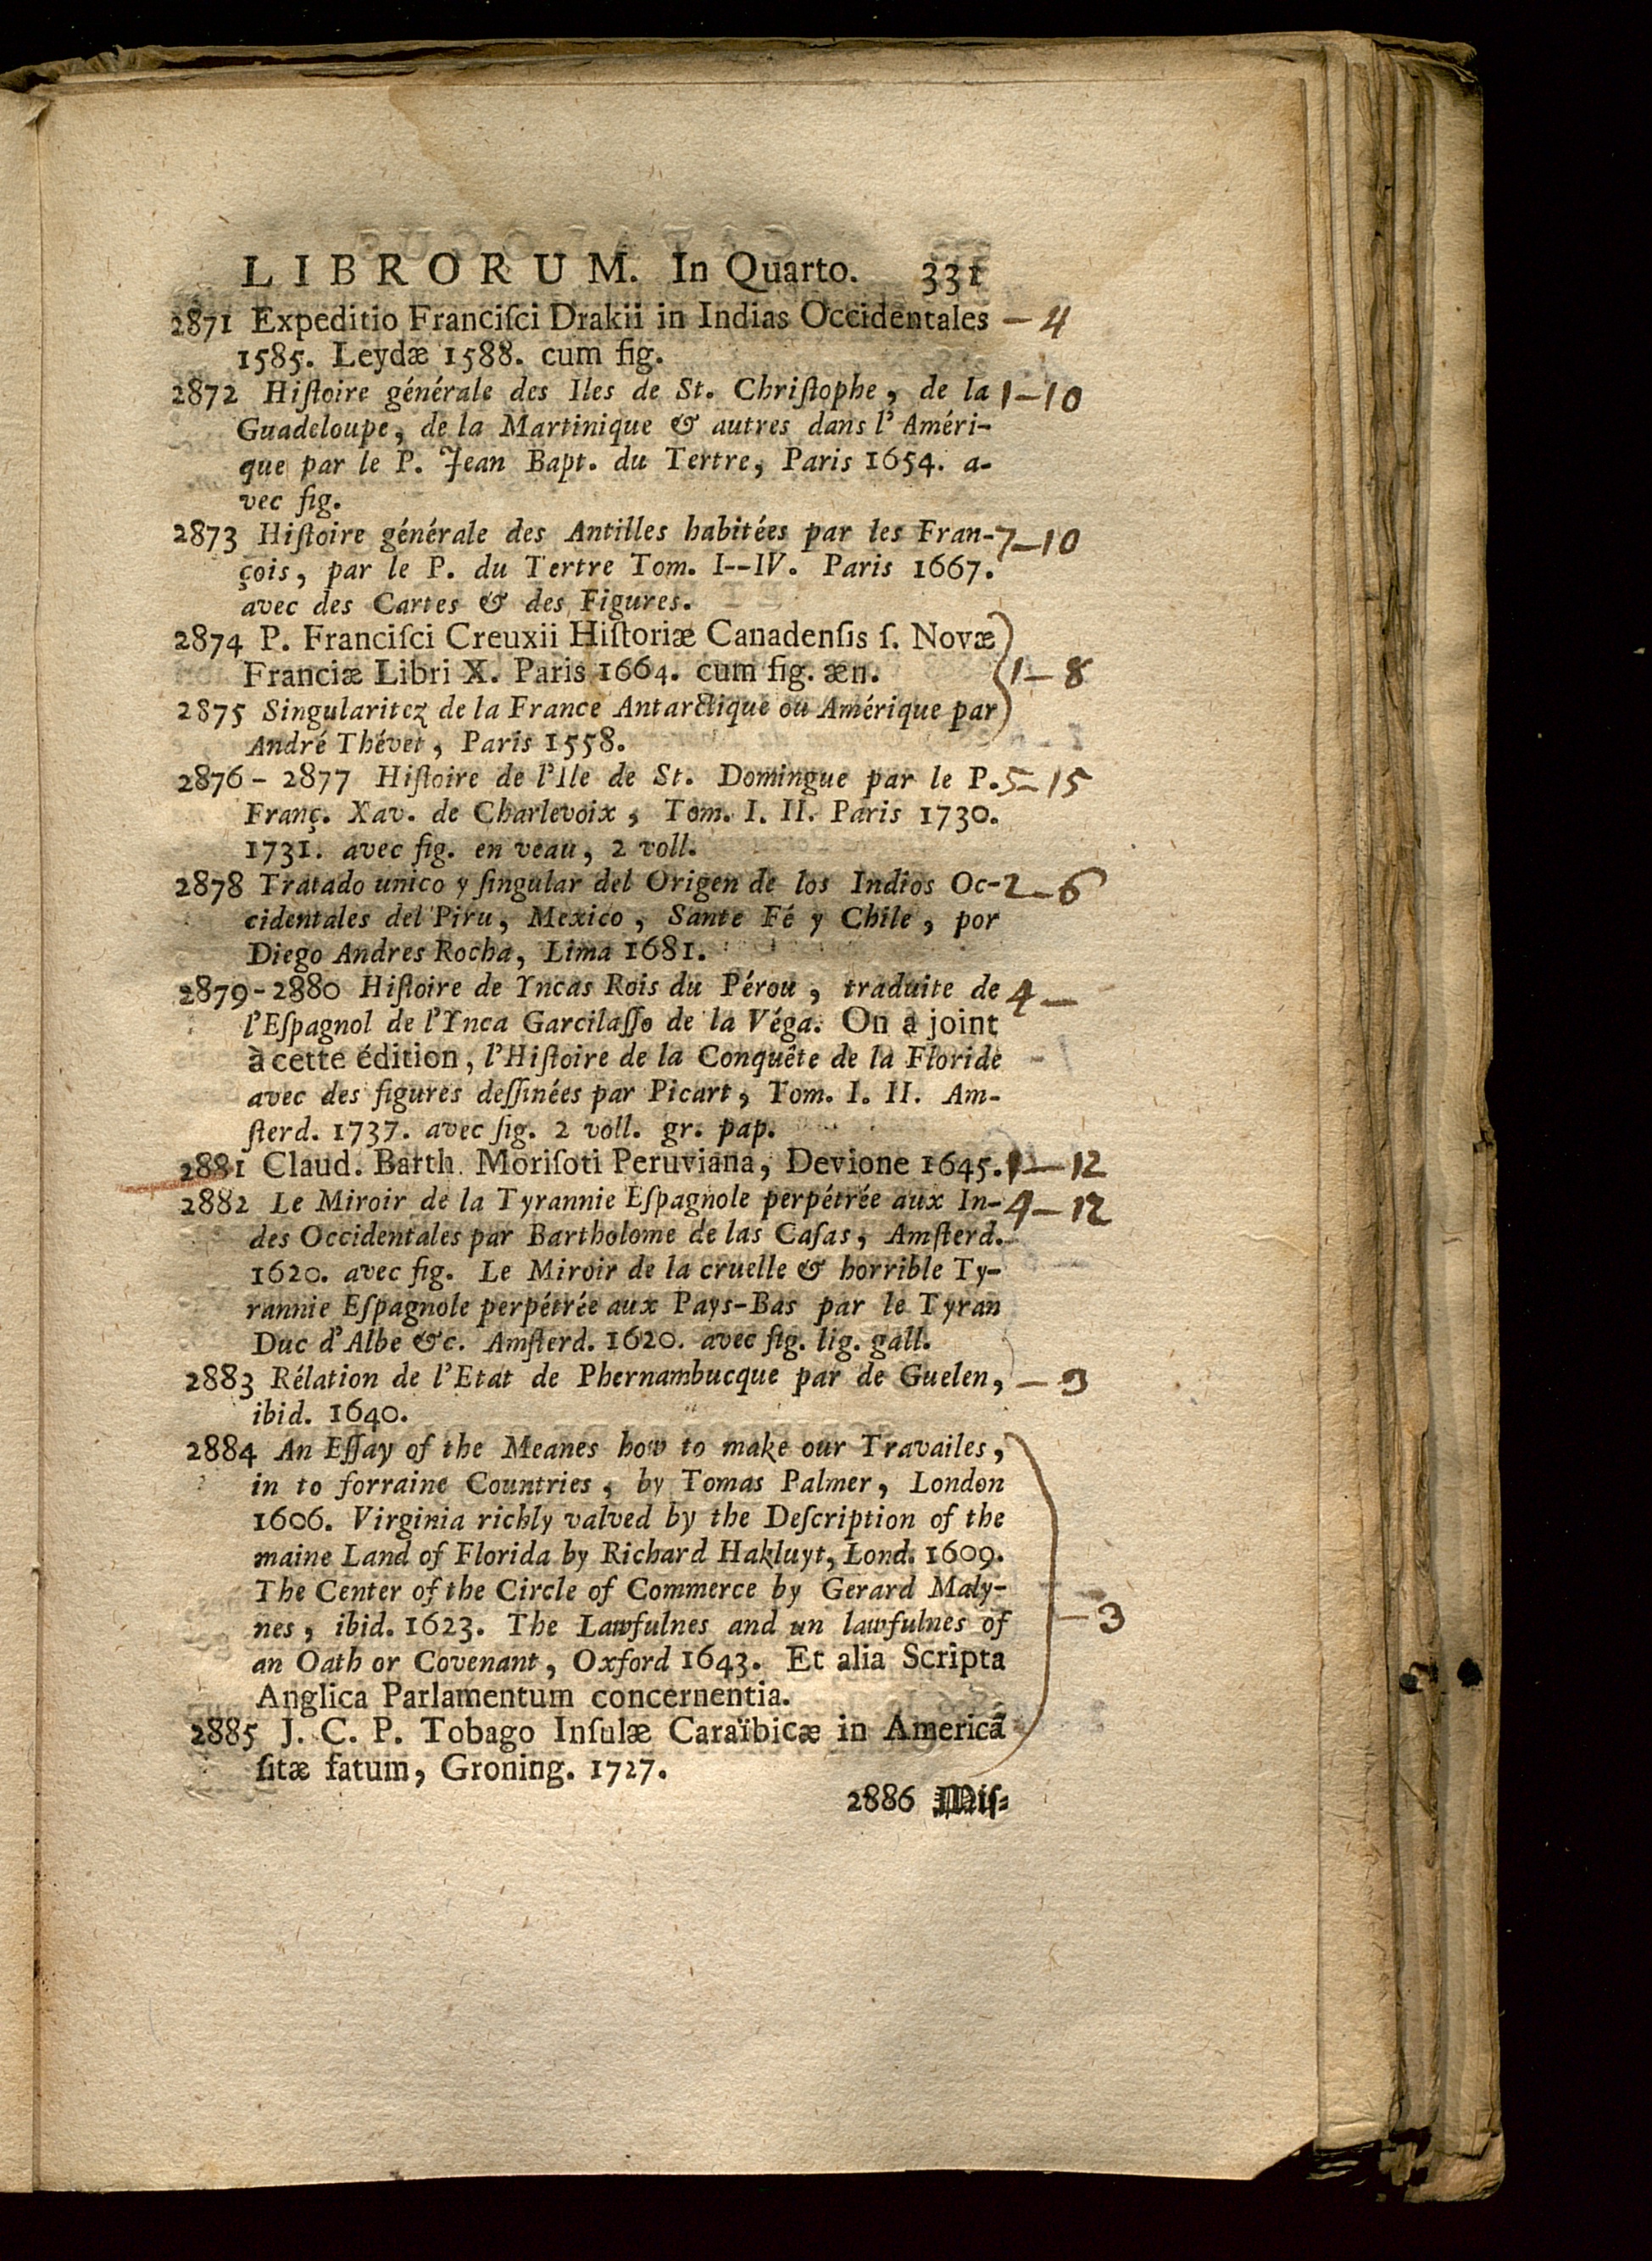 LIBRORUM. In Quarto. 331
2871 Expeditio Franciſci Drakii in Indias Occidentales — 4
1585. Leydæ 1588. cum fig.
2872 Hiſtoire générale des Iles de St. Chriſtophe, de la 1—10
Guadeloupe, de la Martinique & autres dans l'Améri-
que par le P. Jean Bapt. du Tertre, Paris 1654. a-
vec fig.
2873 Hiſtoire générale des Antilles habitées par les Fran- 7—10
çois, par le P. du Tertre Tom. I--IV. Paris 1667.
avec des Cartes & des Figures.
2874 P. Franciſci Creuxii Hiſtoriæ Canadenſis ſ. Novæ
Franciæ Libri X. Paris 1664. cum fig. æn. 1—8
2875 Singularitez de la France Antarctique ou Amérique par
André Thévet, Paris 1558.
2876 - 2877 Hiſtoire de l'Ile de St. Domingue par le P. 5—15
Franç. Xav. de Charlevoix, Tom. I. II. Paris 1730.
1731. avec fig. en veau, 2 voll.
2878 Tratado unico y ſingular del Origen de los Indios Oc- 2—6
cidentales del Piru, Mexico, Sante Fé y Chile, por
Diego Andres Rocha, Lima 1681.
2879-2880 Hiſtoire de Yncas Rois du Pérou, traduite de 4—
l'Eſpagnol de l'Ynca Garcilaſſo de la Véga. On a joint
à cette édition, l'Hiſtoire de la Conquête de la Floride
avec des figures deſſinées par Picart, Tom. I. II. Am-
ſterd. 1737. avec fig. 2 voll. gr. pap.
2881 Claud. Barth. Moriſoti Peruviana, Devione 1645. 1—12
2882 Le Miroir de la Tyrannie Eſpagnole perpétrée aux In- 4—12
des Occidentales par Bartholome de las Caſas, Amſterd.
1620. avec fig. Le Miroir de la cruelle & horrible Ty-
rannie Eſpagnole perpétrée aux Pays-Bas par le Tyran
Duc d'Albe &c. Amſterd. 1620. avec fig. lig. gall.
2883 Rélation de l'Etat de Phernambucque par de Guelen, — 9
ibid. 1640.
2884 An Eſſay of the Meanes how to make our Travailes,
in to forraine Countries, by Tomas Palmer, London
1606. Virginia richly valved by the Deſcription of the
maine Land of Florida by Richard Hakluyt, Lond. 1609.
The Center of the Circle of Commerce by Gerard Maly-
nes, ibid. 1623. The Lawfulnes and un lawfulnes of — 3
an Oath or Covenant, Oxford 1643. Et alia Scripta
Anglica Parlamentum concernentia.
2885 J. C. P. Tobago Inſulæ Caraïbicæ in Americâ
ſitæ fatum, Groning. 1727.
2886 Miſ-